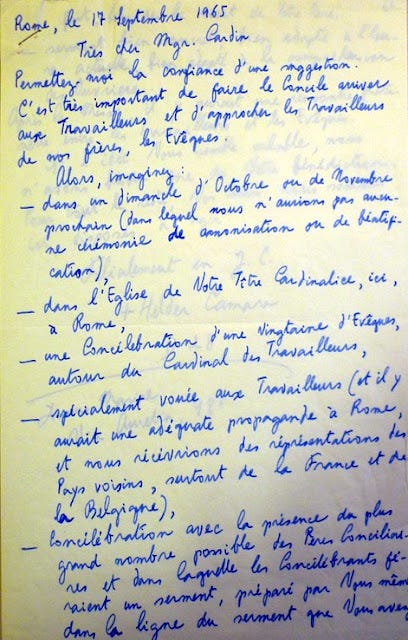 Rome, le 17 Septembre 1965
Très cher Mgr. Cardin
Permettez-moi la confiance d'une suggestion.
C'est très important de faire le Concile arriver
aux Travailleurs et d'approcher les Travailleurs
de nos frères, les Evêques.
Alors, imaginez :
— dans un dimanche d'Octobre ou de Novembre
prochain (dans lequel nous n'aurions pas aucu-
ne cérémonie de canonisation ou de béatifi-
cation),
— dans l'Eglise de Votre Titre Cardinalice, ici,
à Rome,
— une Concélébration d'une vingtaine d'Evêques,
autour du Cardinal des Travailleurs,
— spécialement vouée aux Travailleurs (et il y
aurait une adéquate propagande à Rome,
et nous récévrions des réprésentations des
Pays voisins, surtout de la France et de
la Belgique),
— Concélébration avec la présence du plus
grand nombre possible des Pères Conciliai-
res et dans laquelle les Concélébrants fe-
raient un serment, préparé par Vous même
dans la ligne du serment que Vous avez
Helder Camara